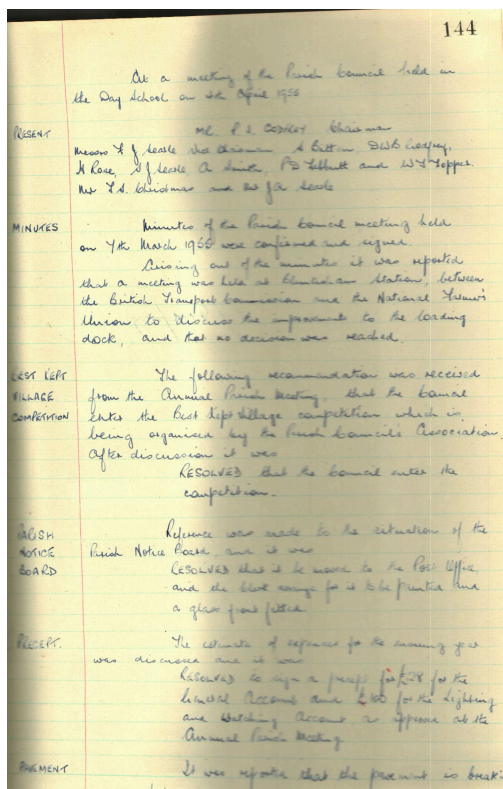 144
At a meeting of the Parish Council held in
the Day School on 4th April 1955
PRESENT
Mr. P.S. GODFREY Chairman
Messrs F J Searle Vice Chairman, S Britton, DWB Godfrey,
H Rose, S J Searle, A Smith, PD Tibbutt and W T Topper.
Mrs F.S. Christmas and Mr J A Searle
MINUTES Minutes of the Parish Council meeting held
on 7th March 1955 were confirmed and signed.
Arising out of the minutes it was reported
that a meeting was held at Station, between
the British Transport Commission and the National Farmers
Union to discuss the improvement to the loading
dock, and that no decision was reached.
BEST KEPT The following recommendation was received
VILLAGE from the Annual Parish Meeting, that the Council
COMPETITION enter the Best Kept Village competition which is
being organised by the Parish Council's Association
After discussion it was
RESOLVED that the Council enter the
competition.
PARISH Reference was made to the situation of the
NOTICE Parish Notice Board, and it was
BOARD RESOLVED that it be moved to the Post Office,
and the Clerk arrange for it to be painted and
a glass front fitted
PRECEPT. The estimate of expenses for the ensuing year
was discussed and it was
RESOLVED to sign a precept for £28 for the
General Account and £100 for the Lighting
and Watching Account as approved at the
Annual Parish Meeting
PAVEMENT It was reported that the pavement is break-